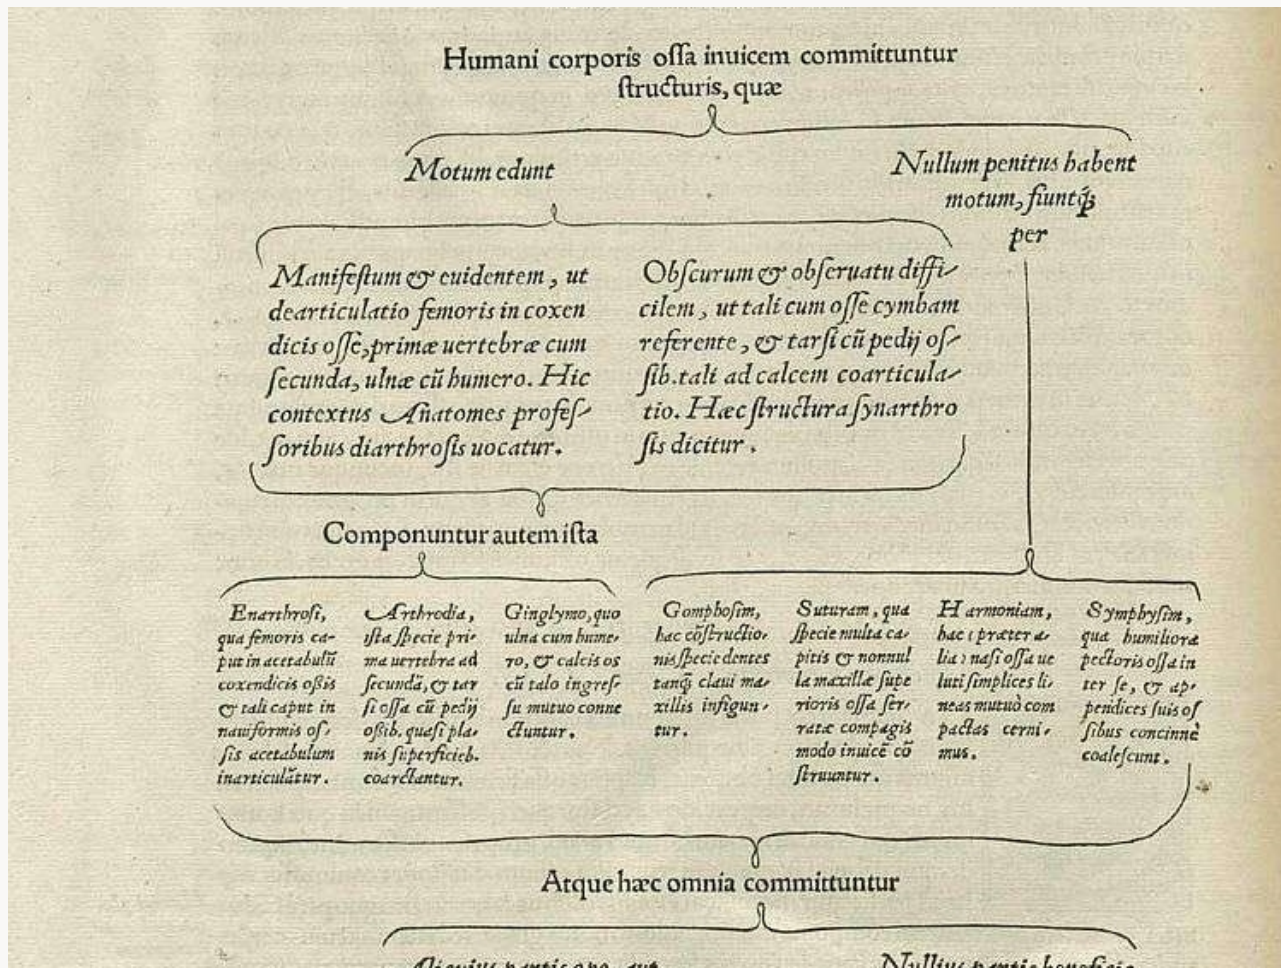 Humani corporis ossa inuicem committuntur
structuris, quæ
Motum edunt
Nullum penitus habent
motum, fiuntq́;
per
Manifestum & euidentem, ut
dearticulatio femoris in coxen
dicis osse, primæ uertebræ cum
secunda, ulnæ cũ humero. Hic
contextus Anatomes profes-
soribus diarthrosis uocatur.
Obscurum & obseruatu diffi-
cilem, ut tali cum osse cymbam
referente, & tarsi cũ pedij os-
sib. tali ad calcem coarticula-
tio. Hæc structura synarthro
sis dicitur.
Componuntur autem ista
Enarthrosi,
qua femoris ca-
put in acetabulũ
coxendicis oßis
& tali caput in
nauiformis os-
sis acetabulum
inarticulãtur.
Arthrodia,
ista specie pri-
ma uertebra ad
secundã, & tar
si ossa cũ pedij
oßib. quasi pla-
nis superficieb.
coarctantur.
Ginglymo, quo
ulna cum hume-
ro, & calcis os
cũ talo ingres-
su mutuo conne
ctuntur.
Gomphosim,
hac cõstructio-
nis specie dentes
tanq̃ claui ma-
xillis infigun-
tur.
Suturam, qua
specie multa ca-
pitis & nonnul
la maxillæ supe
rioris ossa ser-
ratæ compagis
modo inuicẽ cõ
struuntur.
Harmoniam,
hac præter a-
lia nasi ossa ue
luti simplices li-
neas mutuò com
pactas cerni-
mus.
Symphysim,
qua humiliora
pectoris ossa in
ter se, & ap-
pendices suis os
sibus concinnè
coalescunt.
Atque hæc omnia committuntur
Nullius partis beneficio